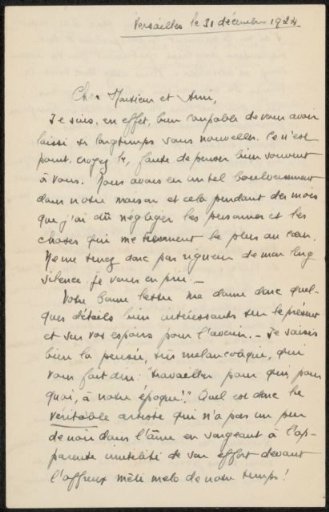 Versailles le 31 décembre 1924
Cher Monsieur et Ami,
Je suis, en effet, bien coupable de vous avoir
laissé si longtemps sans nouvelles. Ce n'est
point, croyez le, faute de penser bien souvent
à vous. Nous avons eu un tel bouleversement
dans notre maison et cela pendant des mois
que j'ai dû négliger les personnes et les
choses qui me tiennent le plus au cœur.
Ne me tenez donc pas rigueur de mon long
silence je vous en prie —
Votre bonne lettre me donne donc quel-
ques détails bien intéressants sur le présent
et sur vos espoirs pour l'avenir. — Je saisis
bien la pensée, très mélancolique, qui
vous fait dire: "travailler pour qui, pour
quoi, à notre époque!" Quel est donc le
véritable artiste qui n'a pas un peu
de noir dans l'âme en songeant à l'ap-
parente inutilité de son effort devant
l'affreux méli mélo de notre temps!